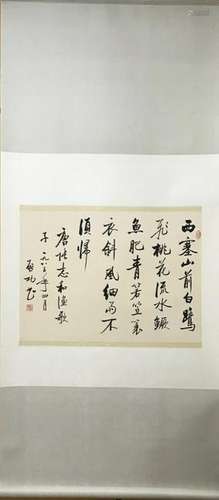 西塞山前白鹭
飞桃花流水鳜
鱼肥青箬笠蓑
衣斜风细雨不
须归
唐张志和渔歌
子 一九八 年四月
启功